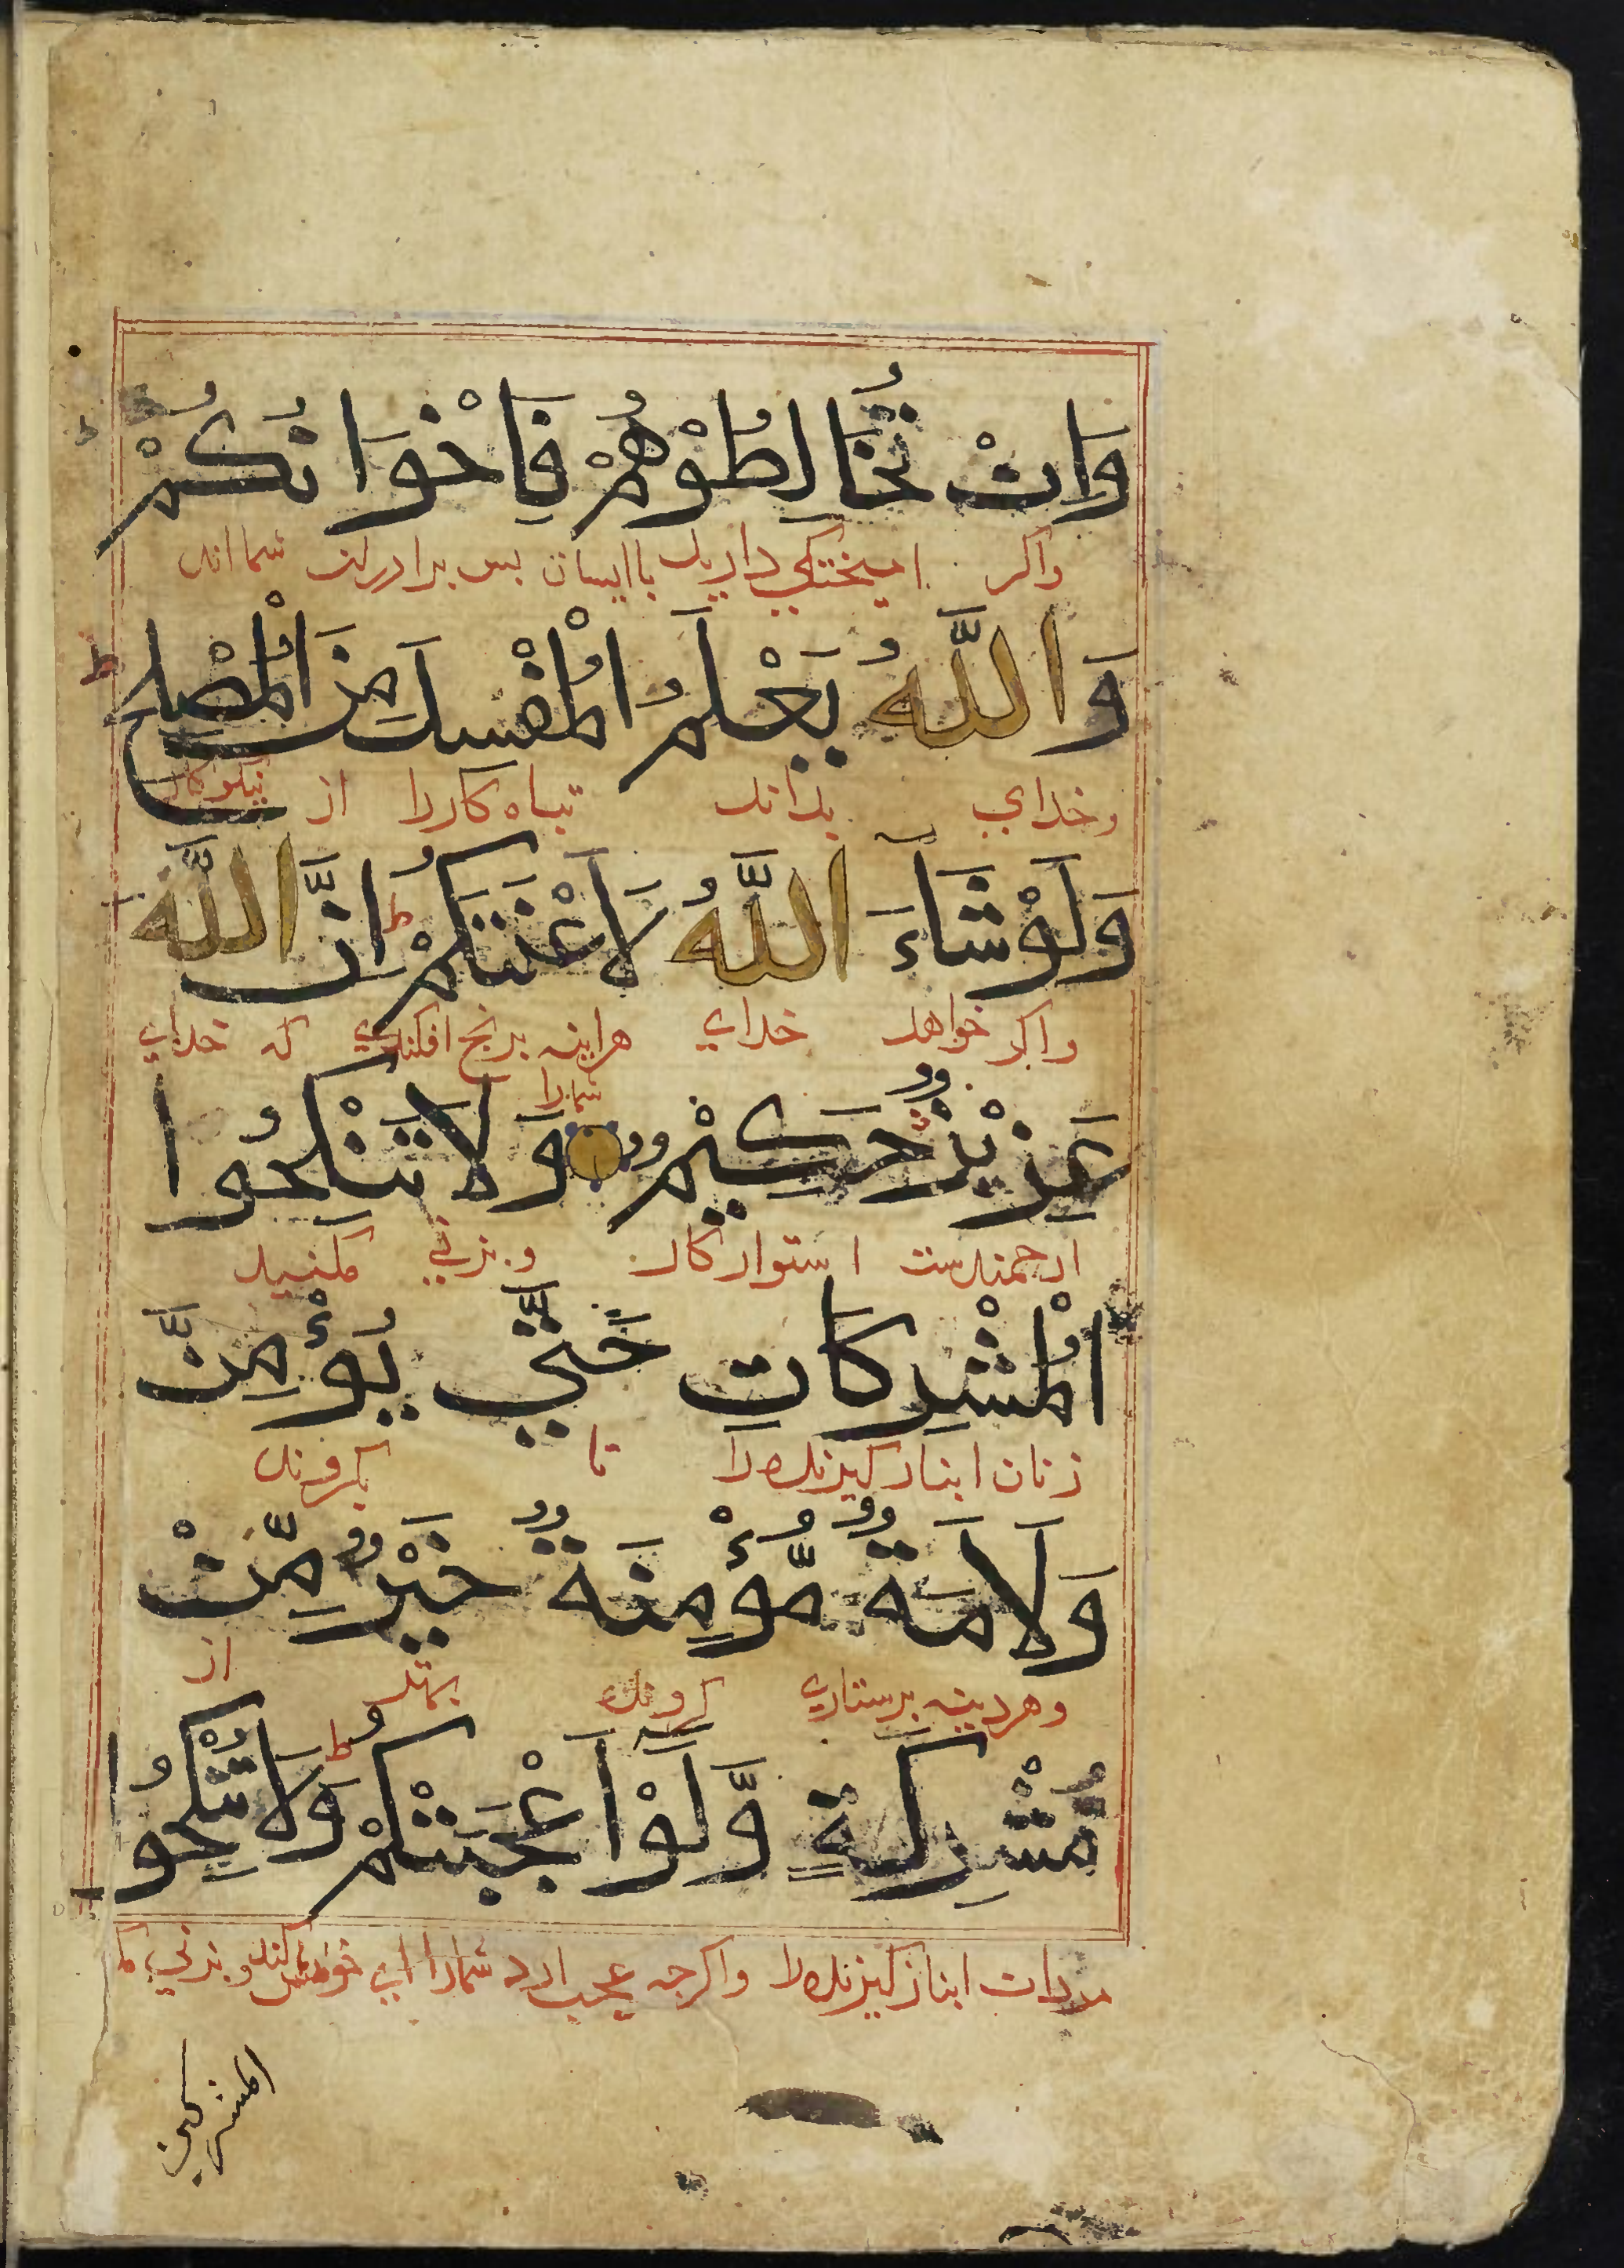 وَاِنْ تُخَالِطُوْهُمْ فَاِخْوَانُكُمْ
واكر اميختكي داريد باايشان بس برادران شمااند
وَاللَّهُ يَعْلَمُ الْمُفْسِدَ مِنَ الْمُصْلِحِ ط
وخداي بداند تباه كاررا از نيكوكار
وَلَوْ شَآءَ اللَّهُ لَاَعْنَتَكُمْ ط اِنَّ اللَّهَ
واكر خواهد خداي هراينه برنج افكندي شمارا كه خداي
عَزِيْزٌ حَكِيْمٌ وَلَا تَنْكِحُوا
ارجمندست استوار كار و بزني مكنيد
الْمُشْرِكَاتِ حَتَّي يُؤْمِنَّ
زنان انباز كيرنده را تا بكروند
وَلَاَمَةٌ مُّؤْمِنَةٌ خَيْرٌ مِّنْ
وهراينه برستاري كرونده بهتر از
مُشْرِكَةٍ وَّلَوْ اَعْجَبَتْكُمْ ط وَلَا تُنْكِحُوا
انباز كيرنده را واكرجه عجب ارد شمارا وبزني
المشركين